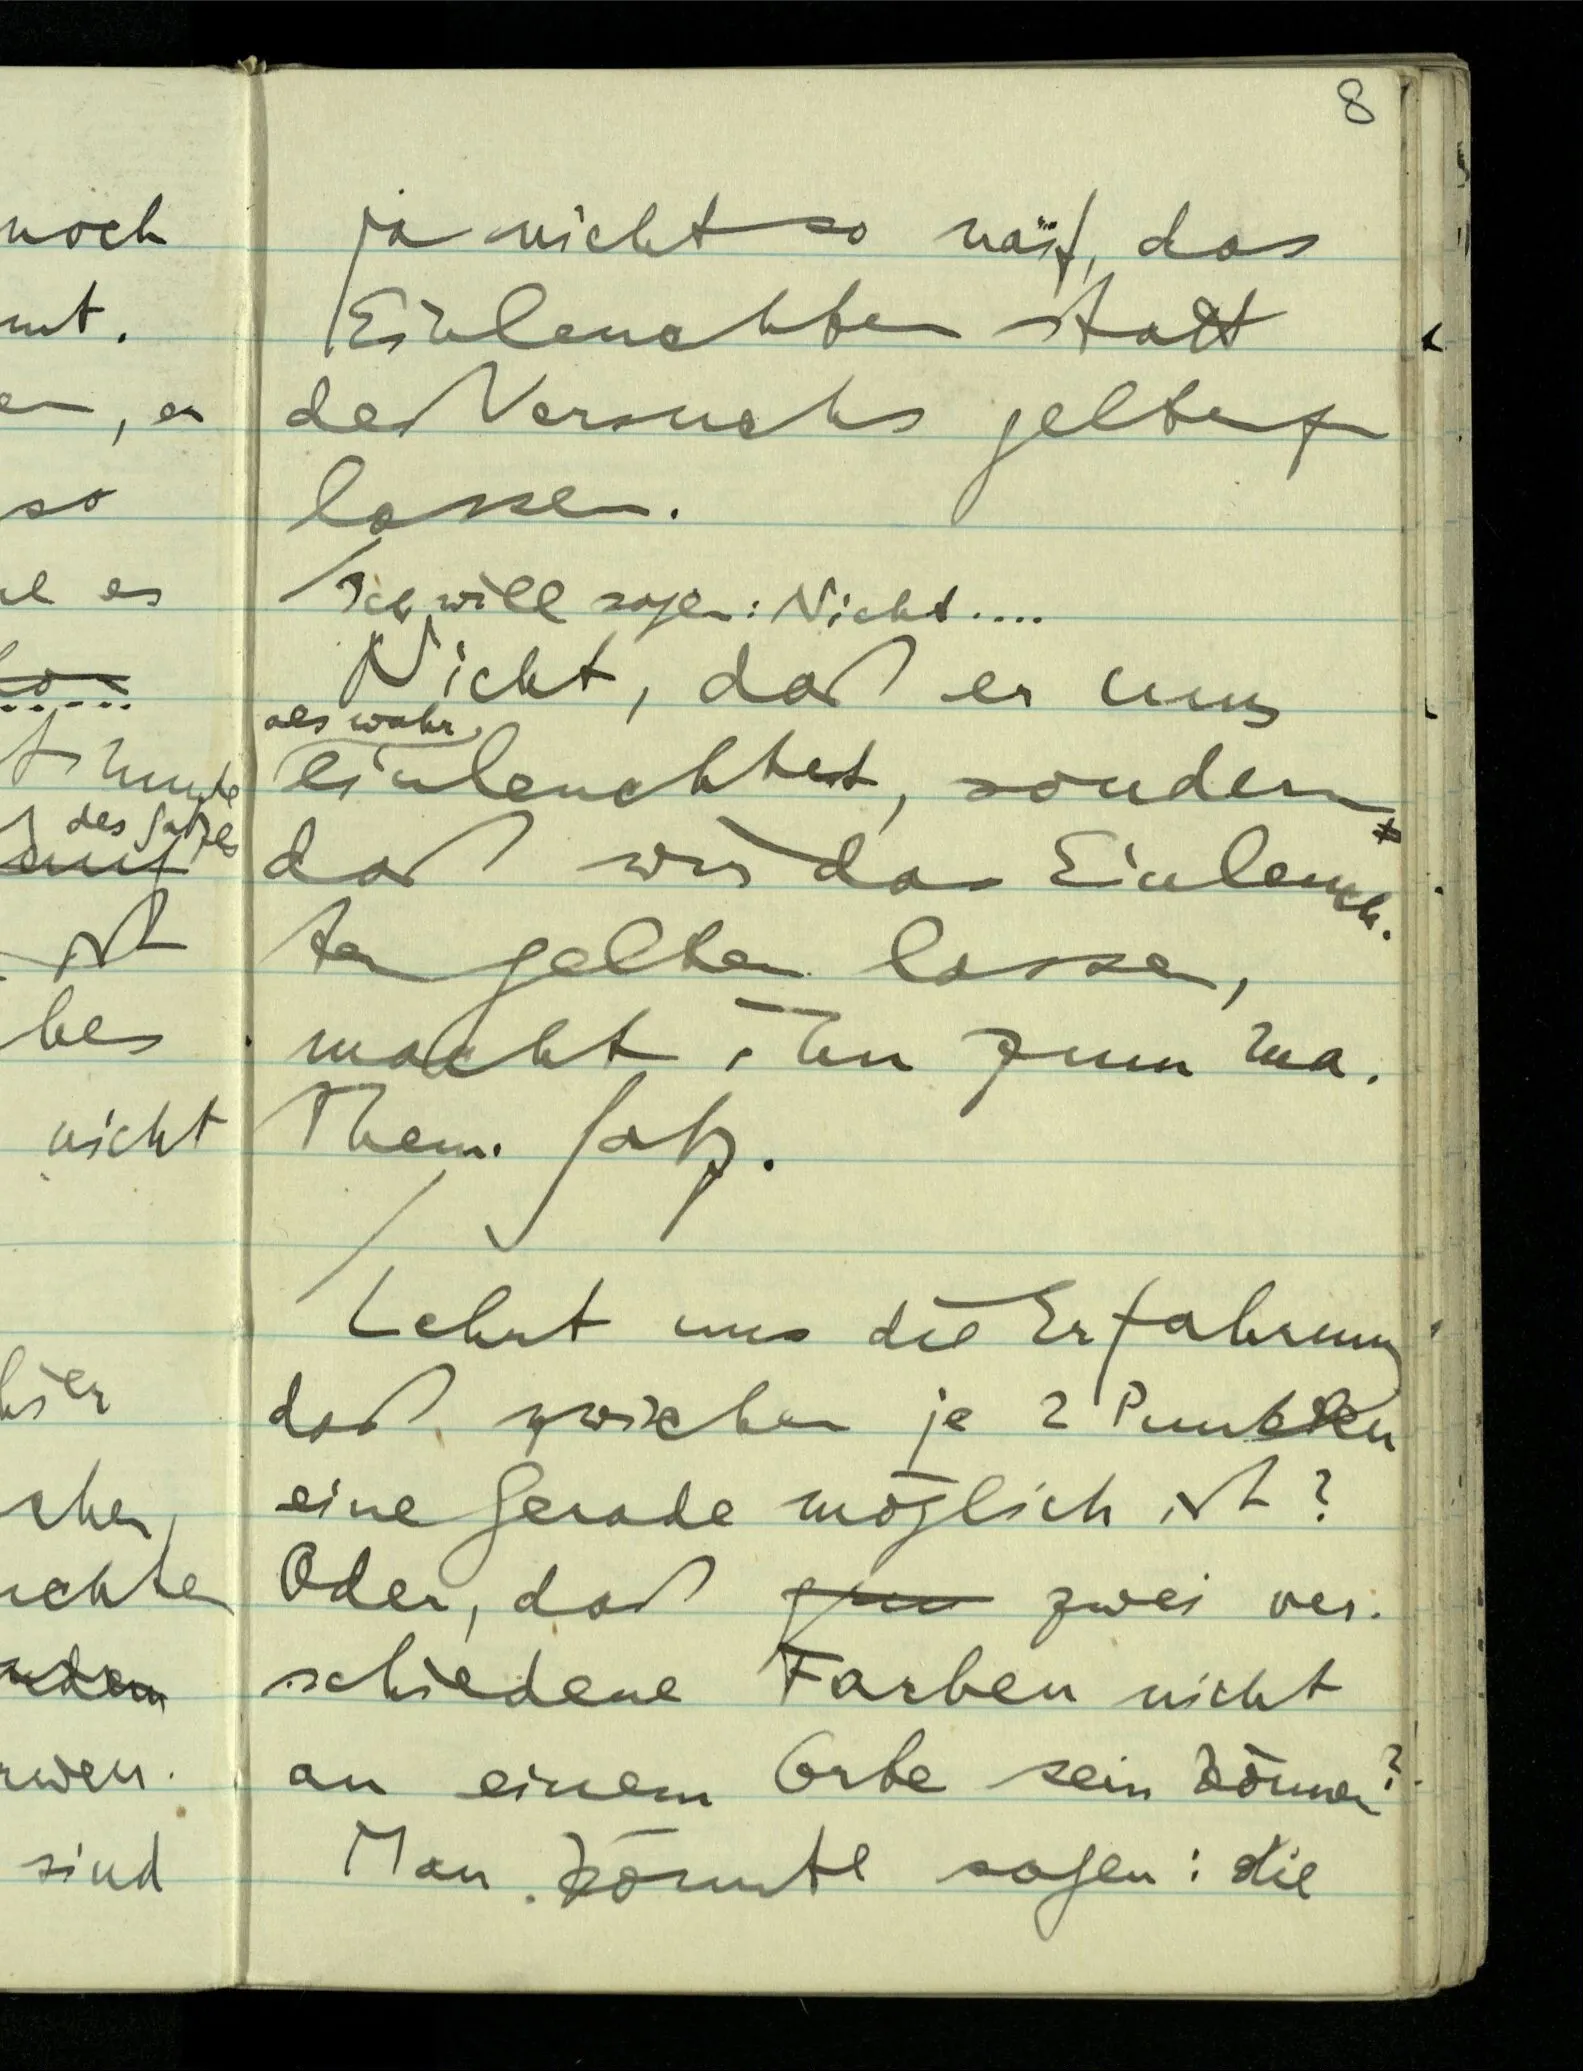 8
noch
mt.
en, er
so
es
des Satzes
ist
nicht
hier
chten
sind
ja nicht so naïf, das
Einleuchten statt
des Versuchs gelten zu
lassen.
Ich will sagen: Nicht....
Nicht, daß er uns
als wahr
einleuchtet, sondern
daß wir das Einleuch-
ten gelten lassen,
macht ihn zum ma-
them. Satz.
Lehrt uns die Erfahrung
daß zwischen je 2 Punkten
eine Gerade möglich ist?
Oder, daß zwei ver-
schiedene Farben nicht
an einem Orte sein können?
Man könnte sagen: die